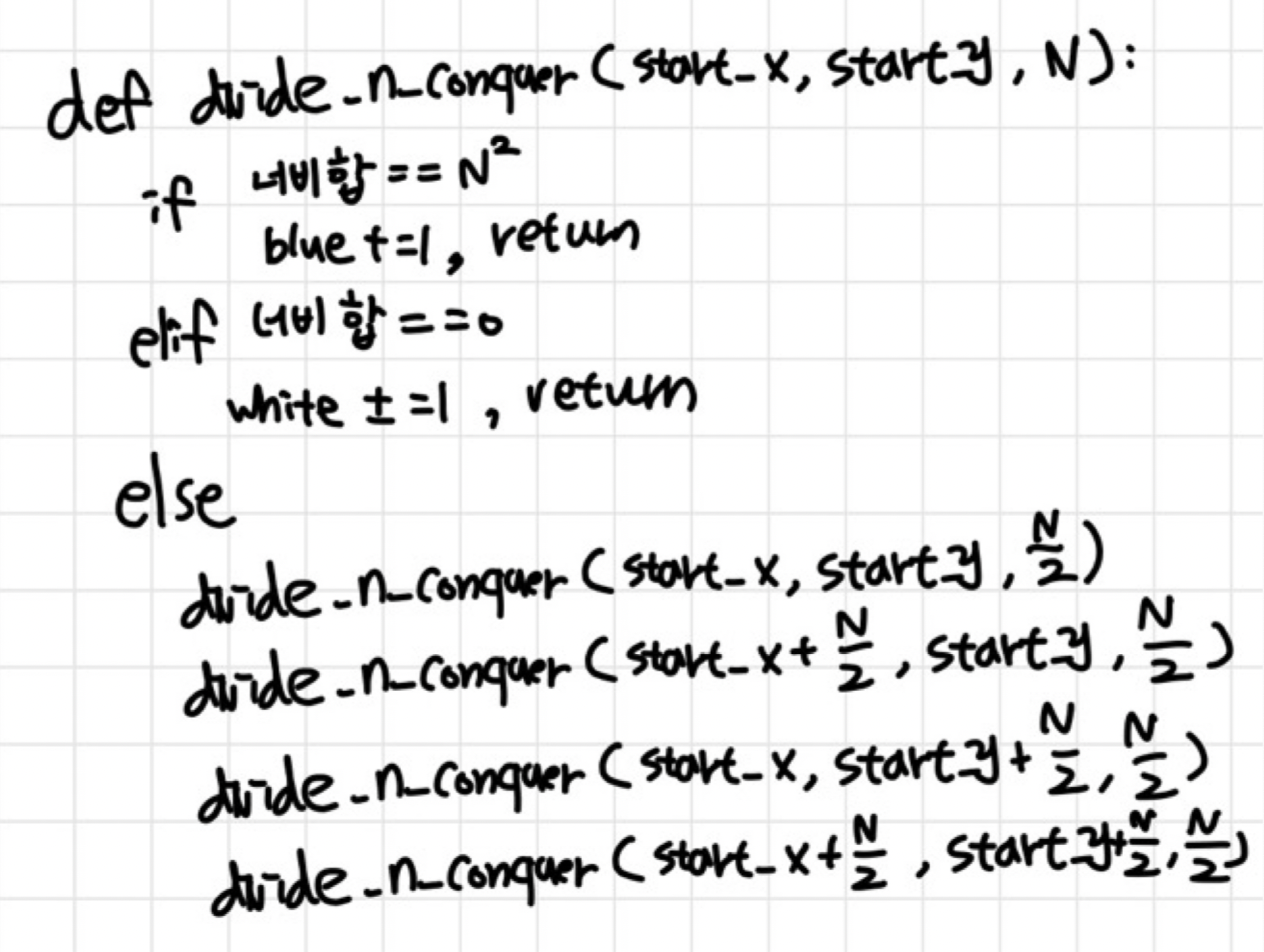 def divide_n_conquer(start_x, start_y, N):
if 너비합 == N²
blue +=1, return
elif 너비합 ==0
white ±=1, return
else
divide_n_conquer(start_x, start_y, N/2)
divide_n_conquer(start_x+N/2, start_y, N/2)
divide_n_conquer(start_x, start_y+N/2, N/2)
divide_n_conquer(start_x+N/2, start_y+N/2, N/2)